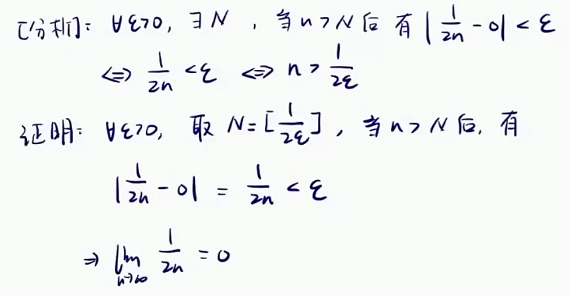 [分析]: ∀ε>0, ∃N , 当n>N后 有 |1/2n - 0| < ε
⇔ 1/2n < ε ⇔ n > 1/2ε
证明: ∀ε>0, 取 N=[1/2ε], 当n>N后, 有
|1/2n - 0| = 1/2n < ε
⇒ lim n→∞ 1/2n = 0